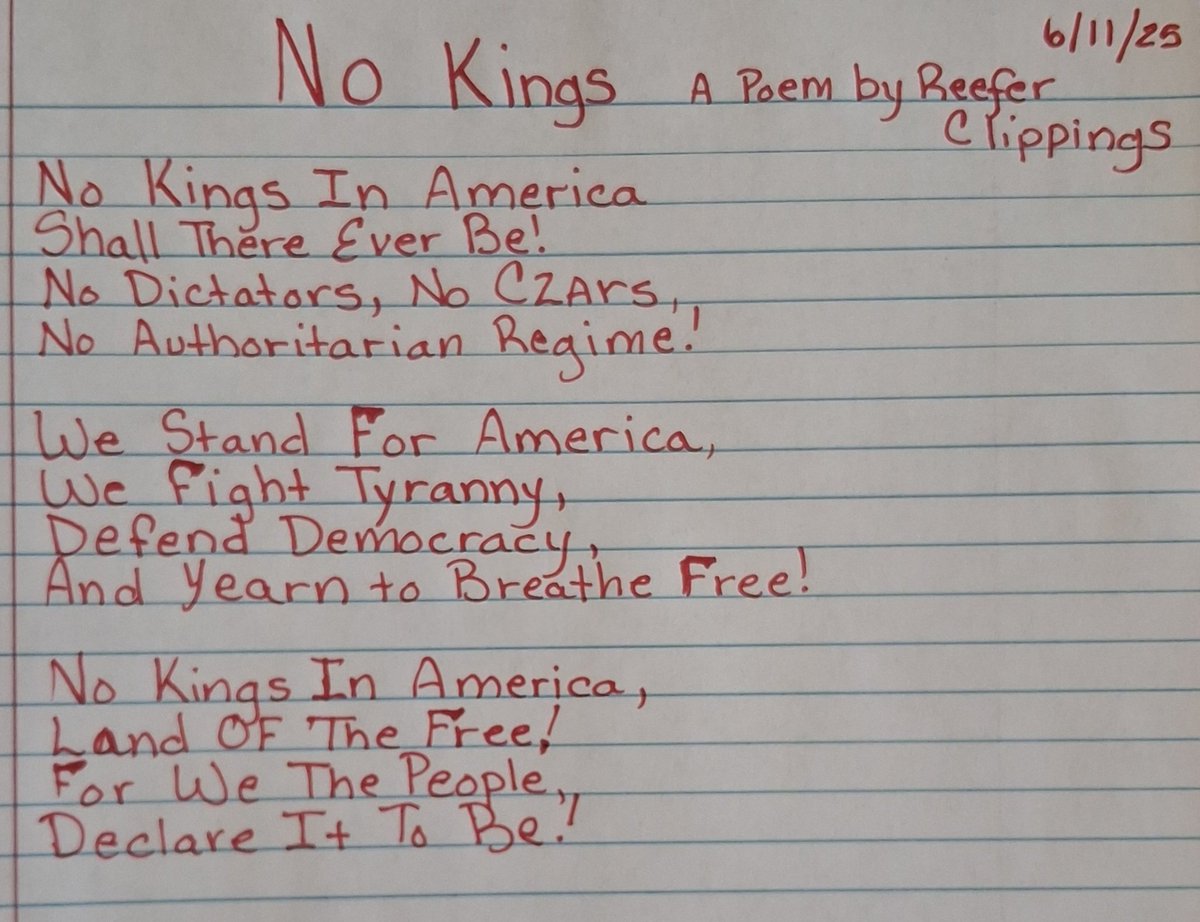 6/11/25
No Kings A Poem by Reefer
Clippings
No Kings In America
Shall There Ever Be!
No Dictators, No CZArs,
No Authoritarian Regime!
We Stand For America,
We Fight Tyranny,
Defend Democracy,
And Yearn to Breathe Free!
No Kings In America,
Land OF The Free!
For We The People,
Declare It To Be!